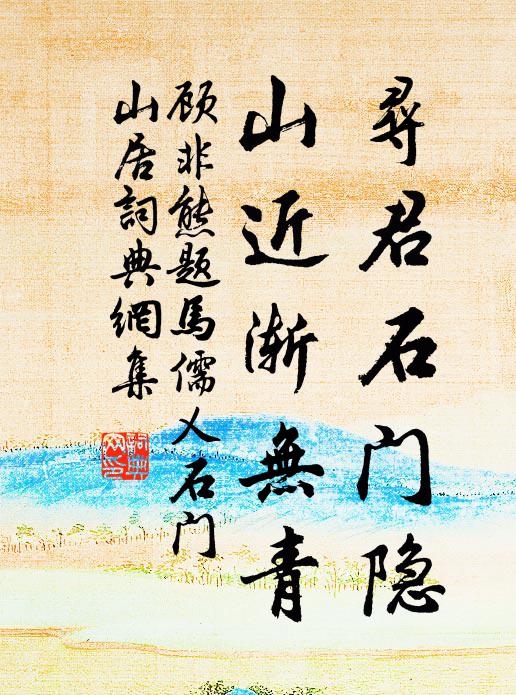 尋君石门隐
山近渐無青
顾非熊题馬儒乂石门
山居詞典網集